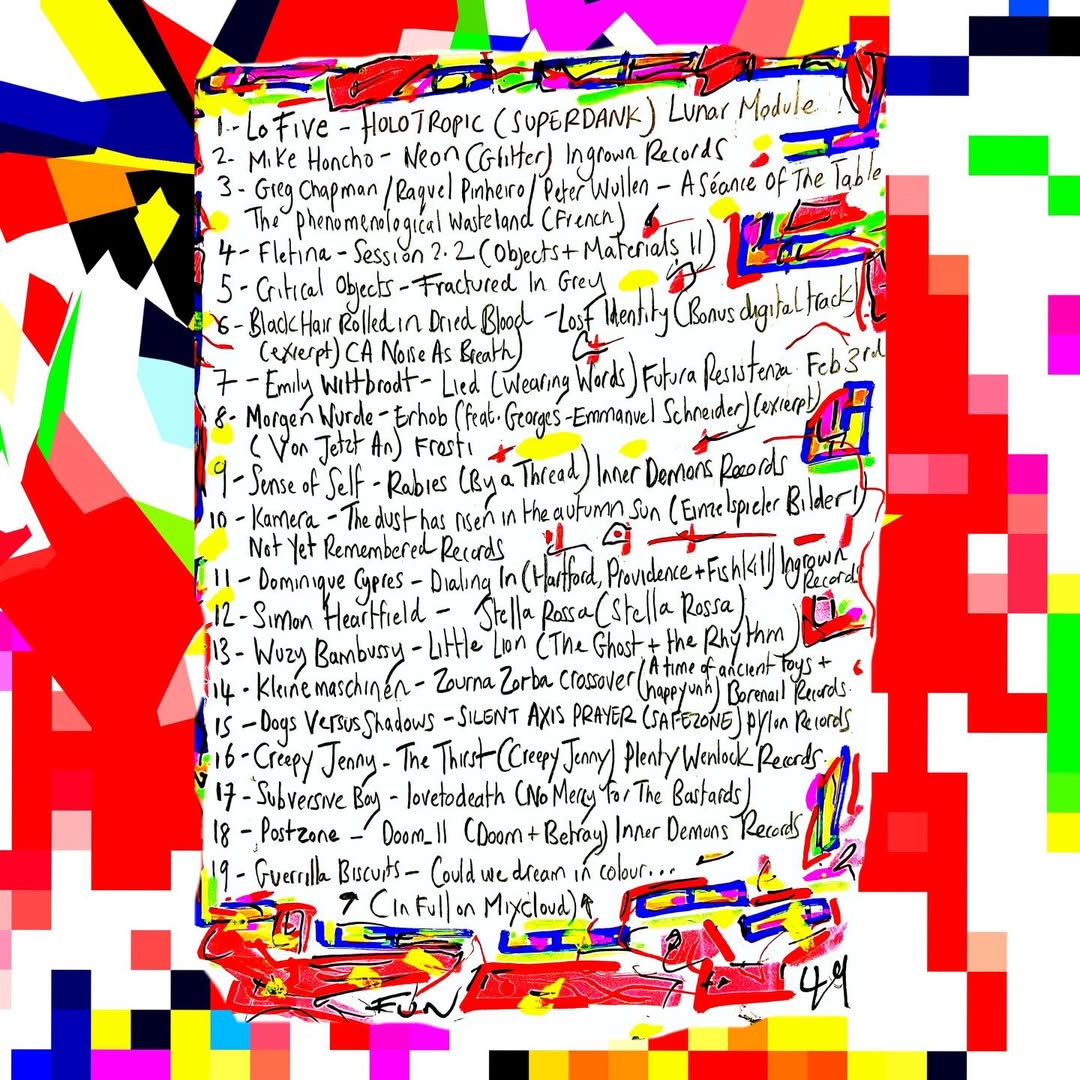 1.- Lo Five - HOLOTROPIC (SUPERDANK) Lunar Module
2- Mike Honcho - Neon (Glitter) Ingrown Records
3 - Greg Chapman / Raquel Pinheiro / Peter Wullen - A Séance Of The Table
The phenomenological wasteland (French)
4- Fletina - Session 2.2 (Objects + Materials II)
5 - Critical Objects - Fractured In Grey
6 - Black Hair Rolled in Dried Blood - Lost Identity (Bonus digital track)
(exierpt) (A Noise As Breath)
7 - Emily Wittbrodt - Lied (Wearing Words) Futura Resistenza Feb 3rd
8- Morgen Wurde - Erhob (feat. Georges-Emmanuel Schneider) (exierpt)
(Von Jetzt An) Frosti
9 - Sense of Self - Rabies (By a Thread) Inner Demons Records
10 - Kamera - The dust has risen in the autumn Sun (Einzelspieler Bilder)
Not Yet Remembered Records
11 - Dominique Cypres - Dialing In (Hartford, Providence + Fishkill) Ingrown Records
12 - Simon Heartfield - Stella Rossa (Stella Rossa)
13 - Wuzy Bambussy - Little Lion (The Ghost + the Rhythm)
14 - Kleine maschinen - Zourna Zorba crossover (A time of ancient Toys + happyunh) Borenail Records.
15 - Dogs Versus Shadows - SILENT AXIS PRAYER (SAFEZONE) Pylon Records
16 - Creepy Jenny - The Thirst (Creepy Jenny) Plenty Wenlock Records.
17 - Subversive Boy - lovetodeath (No Mercy for The Bastards)
18 - Postzone - Doom_II (Doom + Betray) Inner Demons Records
19 - Guerrilla Biscuits - Could we dream in colour...
↑ (In Full on Mixcloud) ↑
FUN
49